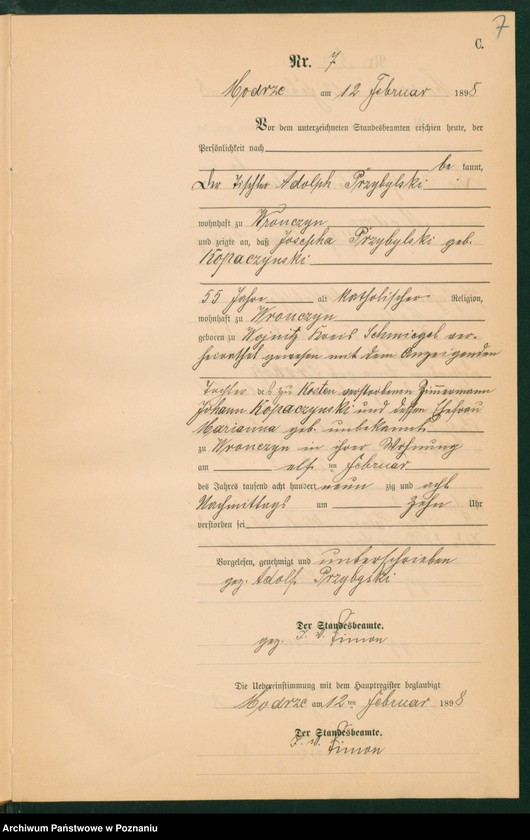 7
C.
Nr. 7
Modrze am 12 Februar 1898
Vor dem unterzeichneten Standesbeamten erschien heute, der
Persönlichkeit nach
be kannt,
der Tischler Adolph Przybylski
wohnhaft zu Wronczyn
und zeigte an, daß Josepha Przybylski geb.
Kopaczynski
55 Jahre alt katholischer Religion,
wohnhaft zu Wronczyn
geboren zu Wojnitz Kreis Schmiegel ver-
heirathet gewesen mit dem Anzeigenden
Tochter des zu Kosten verstorbenen Zimmermann
Johann Kopaczynski und dessen Ehefrau
Marianna geb. unbekannt
zu Wronczyn in ihrer Wohnung
am elf ten Februar
des Jahres tausend acht hundert neun zig und acht
Nachmittags um zehn Uhr
verstorben sei
Vorgelesen, genehmigt und unterschrieben
gez. Adolf Przybylski
Der Standesbeamte.
gez. I. V. Simon
Die Uebereinstimmung mit dem Hauptregister beglaubigt
Modrze am 12 ten Februar 1898
Der Standesbeamte.
I. V. Simon
Archiwum Państwowe w Poznaniu